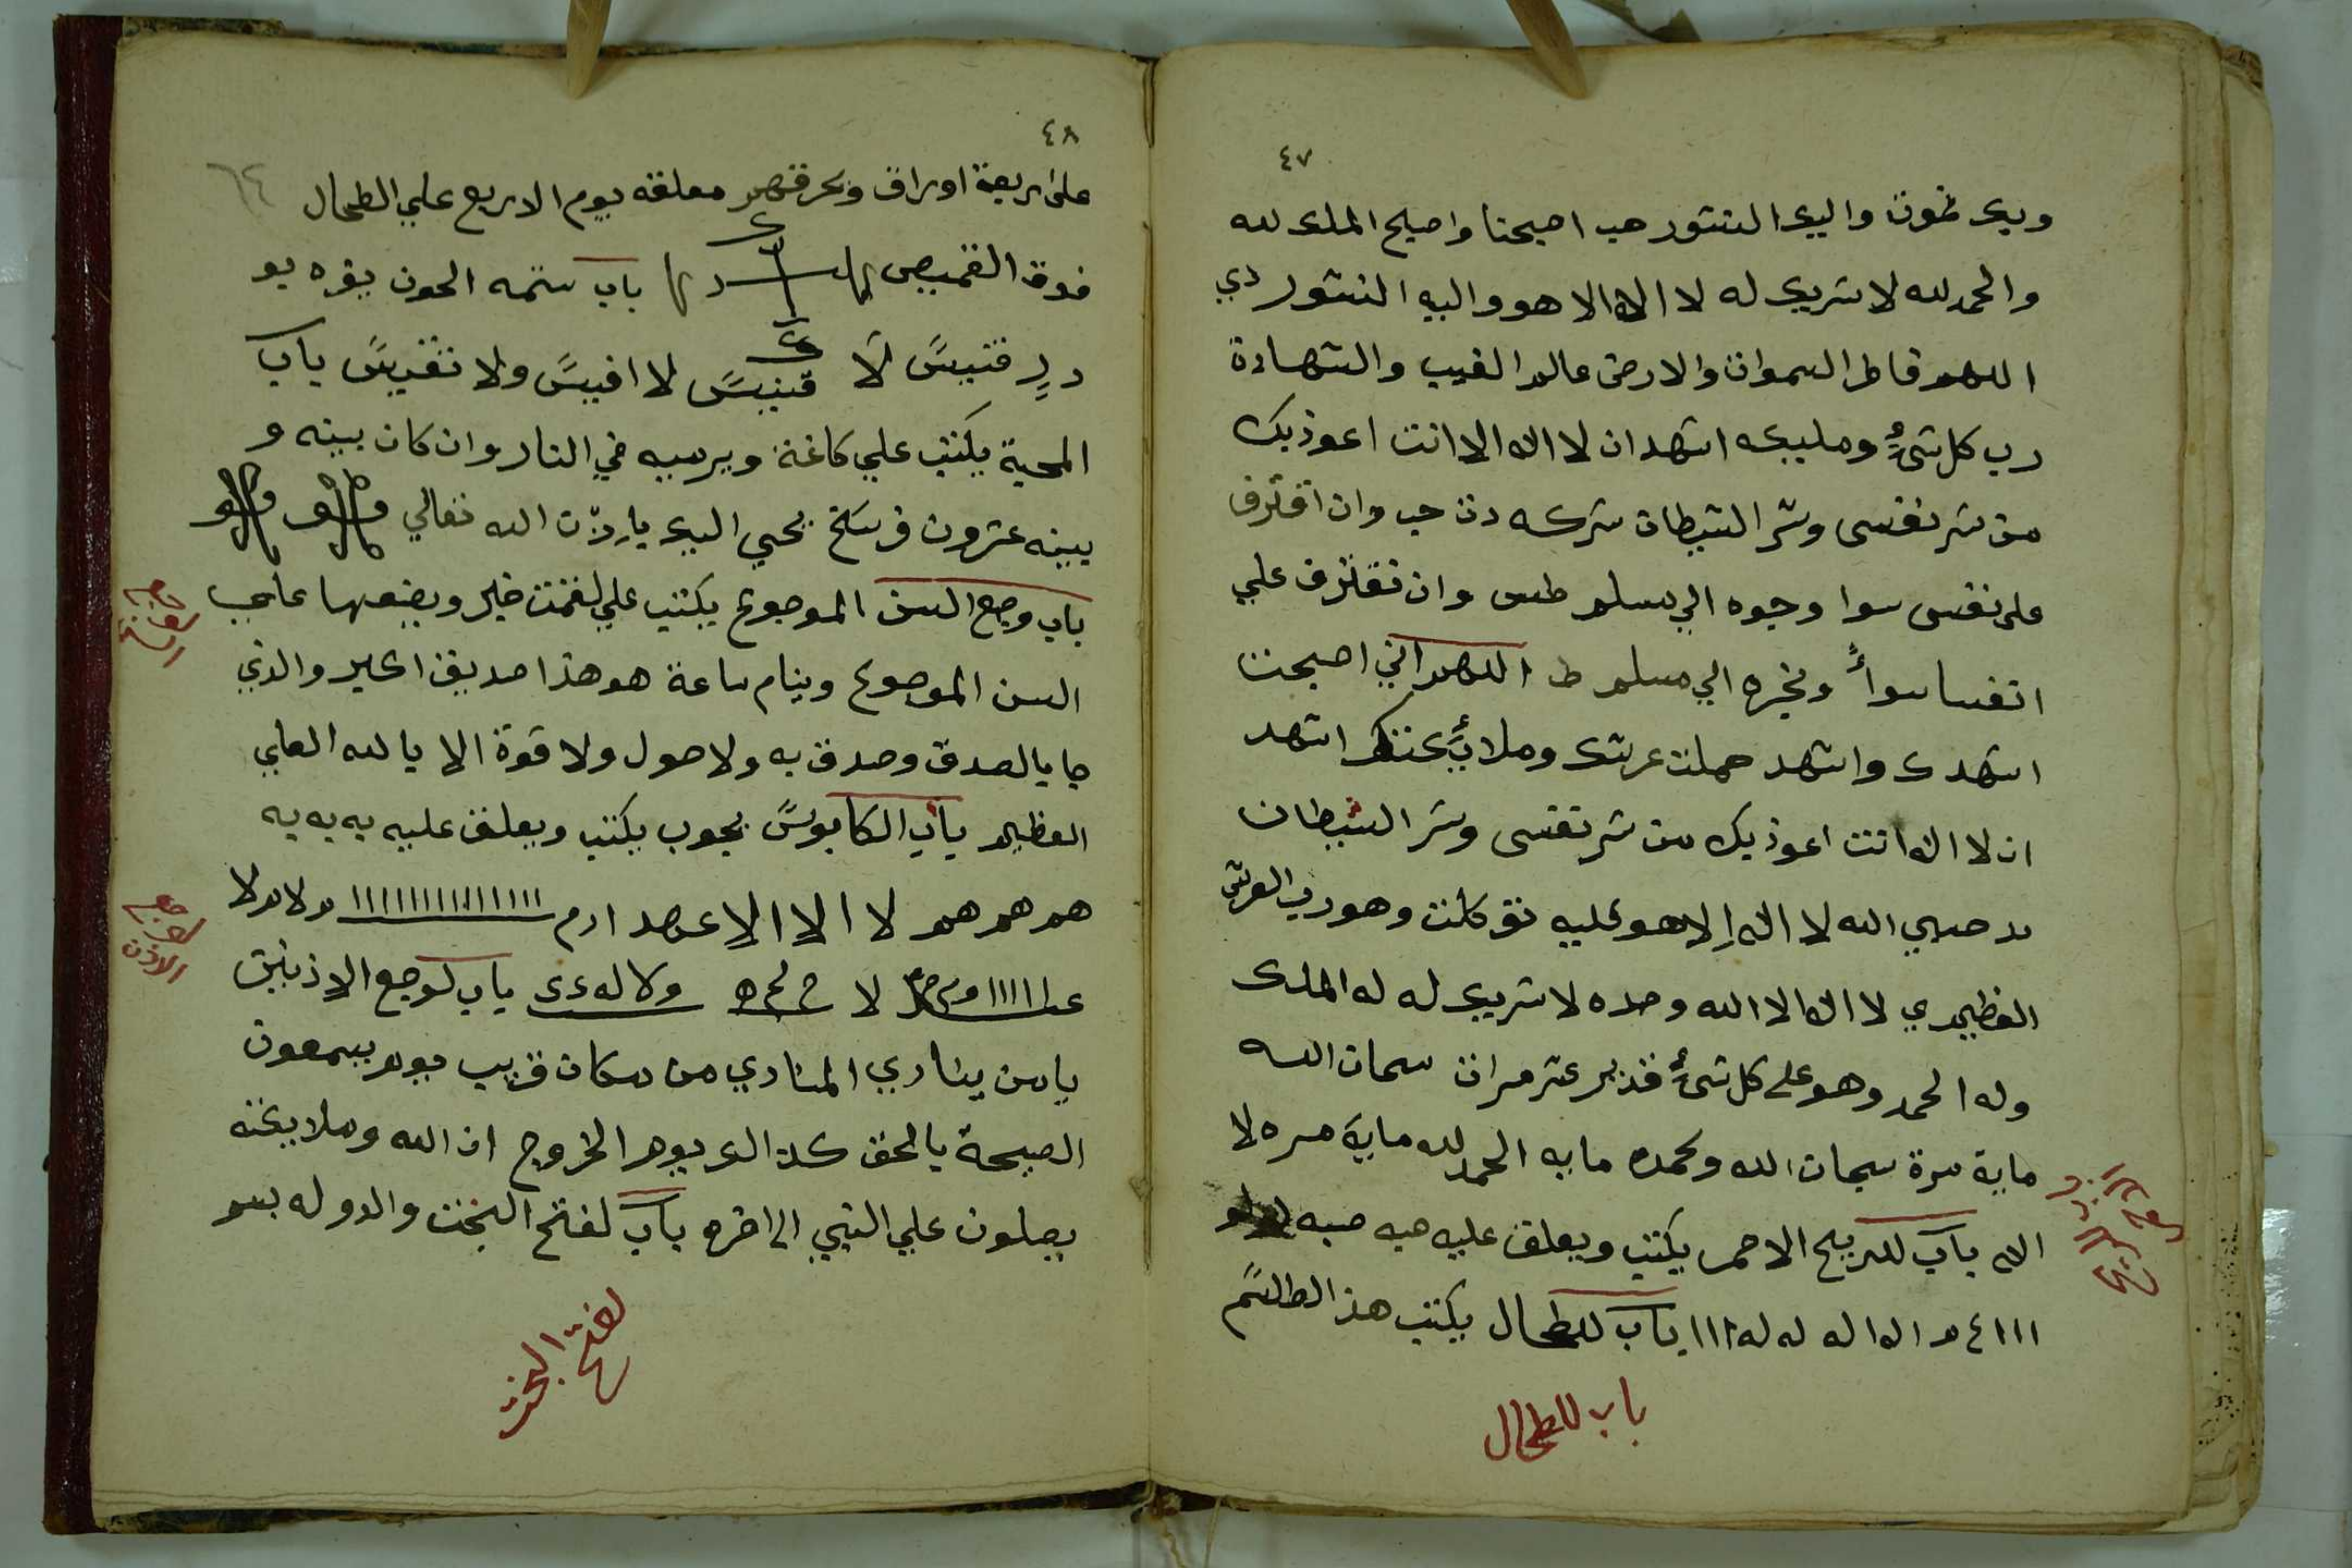 ٤٧
وبك نموت واليك النشور هب اصبحنا واصبح الملك لله
والحمد لله لا شريك له لا اله الا هو واليه النشور دي
اللهم فاطر السموات والارض عالم الغيب والشهادة
رب كل شيءٍ ومليكه اشهد ان لا اله الا انت اعوذ بك
من شر نفسى وشر الشيطان شركه دن حب وان اقترف
على نفسى سوا وجوه الي مسلم طس وان نقترف علي
انفسنا سواً ونجره الي مسلم ط اللهم اني اصبحت
اشهدك واشهد حملت عرشك وملايكتك اشهد
ان لا اله انت اعوذ بك من شر نفسى وشر الشيطان
مد حسبي الله لا اله الا هو عليه توكلت وهو رب العرش
العظيم دي لا اله الا الله وحده لا شريك له له الملك
وله الحمد وهو على كل شيءٍ قدير عشر مرات سبحان الله
ماية مرة سبحان الله وبحمده مايه الحمد لله ماية مره لا
اله باب للريح الاحمر يكتب ويعلق عليه صبه صبه
ااا٤ م اله اله له له ااا باب للطحال يكتب هذ الطالسَم
باب للطحال
٤٨
٦٤
على اربعة اوراق وبحرقهم معلقه يوم الاربع علي الطحال
فوق القميص باب ستمه الحون يقره يو
د دٍ فتيسً لَا قنيسً لا افيسً ولا نقيسً باب
المحبة يكتب علي كاغة ويرميه في النار وان كان بينه و
بينه عشرون فرسخ بحي اليك باردت الله تعالي
باب وجع السن الموجوع يكتب علي لقمت خبز ويضعها علي
السن الموجوع وينام ساعة هو هذا صديق اكبر والذي
جا بالصدق وصدق به ولا حول ولا قوة الا بالله العلي
العظيم باب الكابوسً مجوب يكتب ويعلق عليه يه يه يه
هم هم هم لا الا الا عهد ادم
لا ولا له باب لوجع الاذنين
يا من ينادي المنادي من مكان قريب يوم يسمعون
الصيحة بالحق كذ الك يوم الخروج ان الله وملايكته
يصلون علي النبي الى اخره باب لفتح البخت والدوله بسم
لوجع الاذن
لفتح البخت